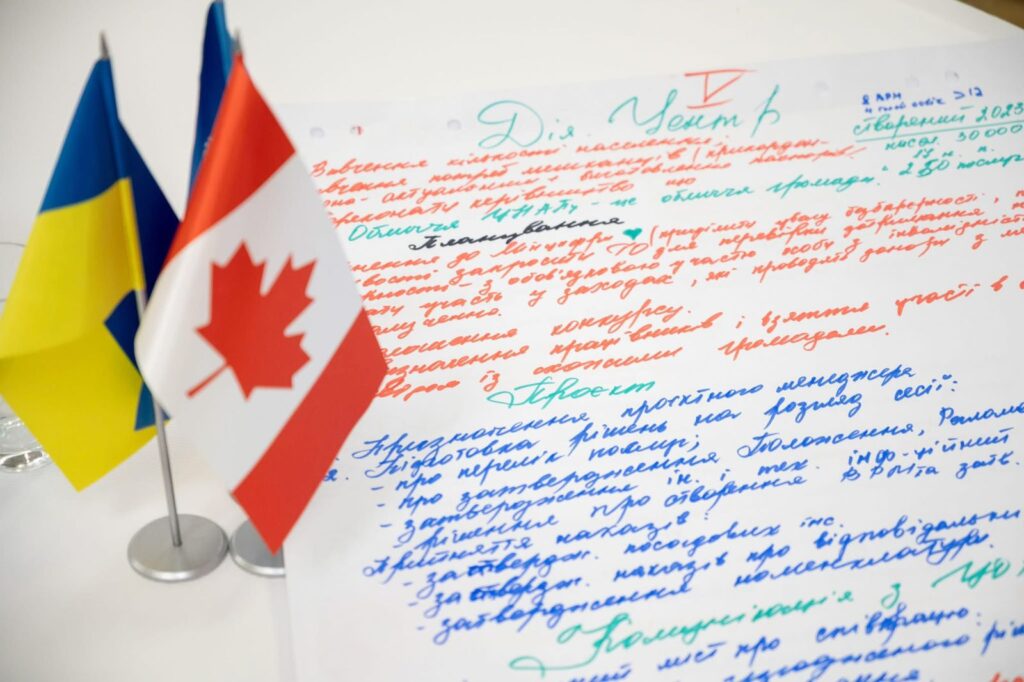 V
Дія. Центр
Я АРН
> 12
створений 2023
насел. 30 000
Вивчення кількості населення.
вчення потреб мешканців (прикордон-
но-актуально виготовлення паспортів.
переконати керівництво що
250 послуг
Обличчя ЦНАПу - це обличчя громади"
Планування
нення до Мінцифри (приділити увагу безбарерності,
запросити ГО для перевірки дотримання
ності - з обов'язковою участю особи з інвалідністю
участь у заходах, які проводять донори з
лученню.
лошення конкурсу.
значення працівників і взяття участі в
із схожими громадами.
Проєкт
Призначення проєктного менеджера
Підготовка рішень на розгляд сесії:
- про перелік послуг;
- про затвердження Положення, Реглам
- затвердження ін. і тех. інф-ційний
рішення про створення
Прийняття наказів:
- затвердж. посадових інс.
- затвердж. наказів про відповідальни
- затвердження номенклатури.
Комунікація з ЦО
лист про співпрацю: